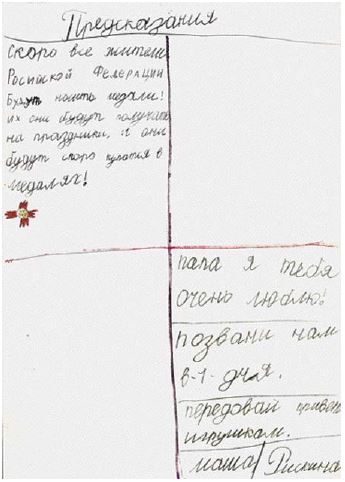 Предсказания
Скоро все жители
Росиской Федерации
Будут носить медали!
их они будут получать
на праздники, и они
будут скоро купатся в
медалях!
папа я тебя
очень люблю!
позвани нам
в-1-дня.
передовай привет
игрушкам.
маша/Рискина